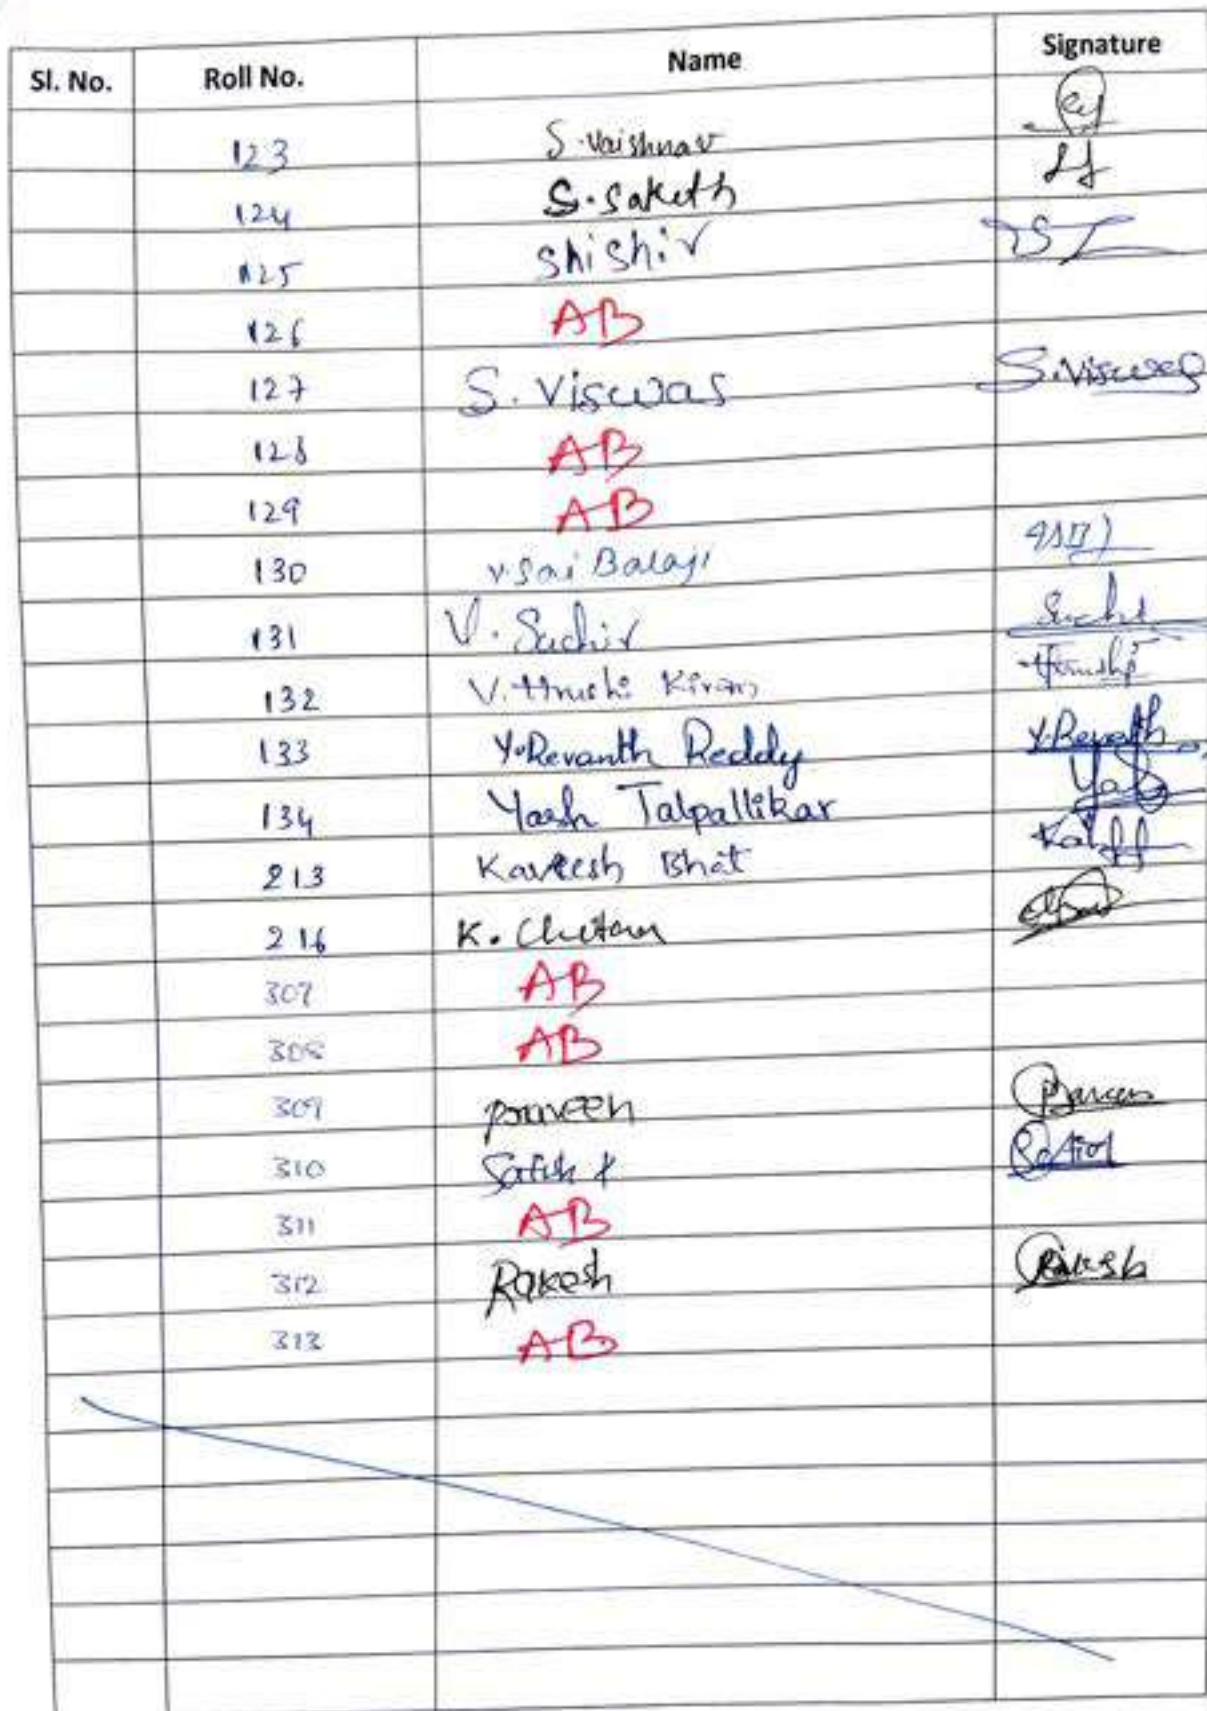 Sl. No. Roll No. Name Signature
123 S. Vaishnav
124 S. Saketh
125 Shishir
126 AB
127 S. Viswas S. Viswas
128 AB
129 AB
130 V. Sai Balaji
131 V. Suchir
132 V. Hrushi Kiran Hrushi
133 Y. Revanth Reddy Y. Revanth
134 Yash Talpallikar Yash
213 Kartesh Bhat
216 K. Chetan
307 AB
308 AB
309 Praveen
310 Satish K
311 AB
312 Rakesh Rakesh
313 AB